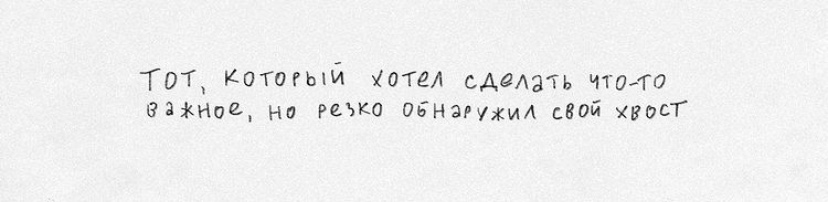 тот, который хотел сделать что-то
важное, но резко обнаружил свой хвост